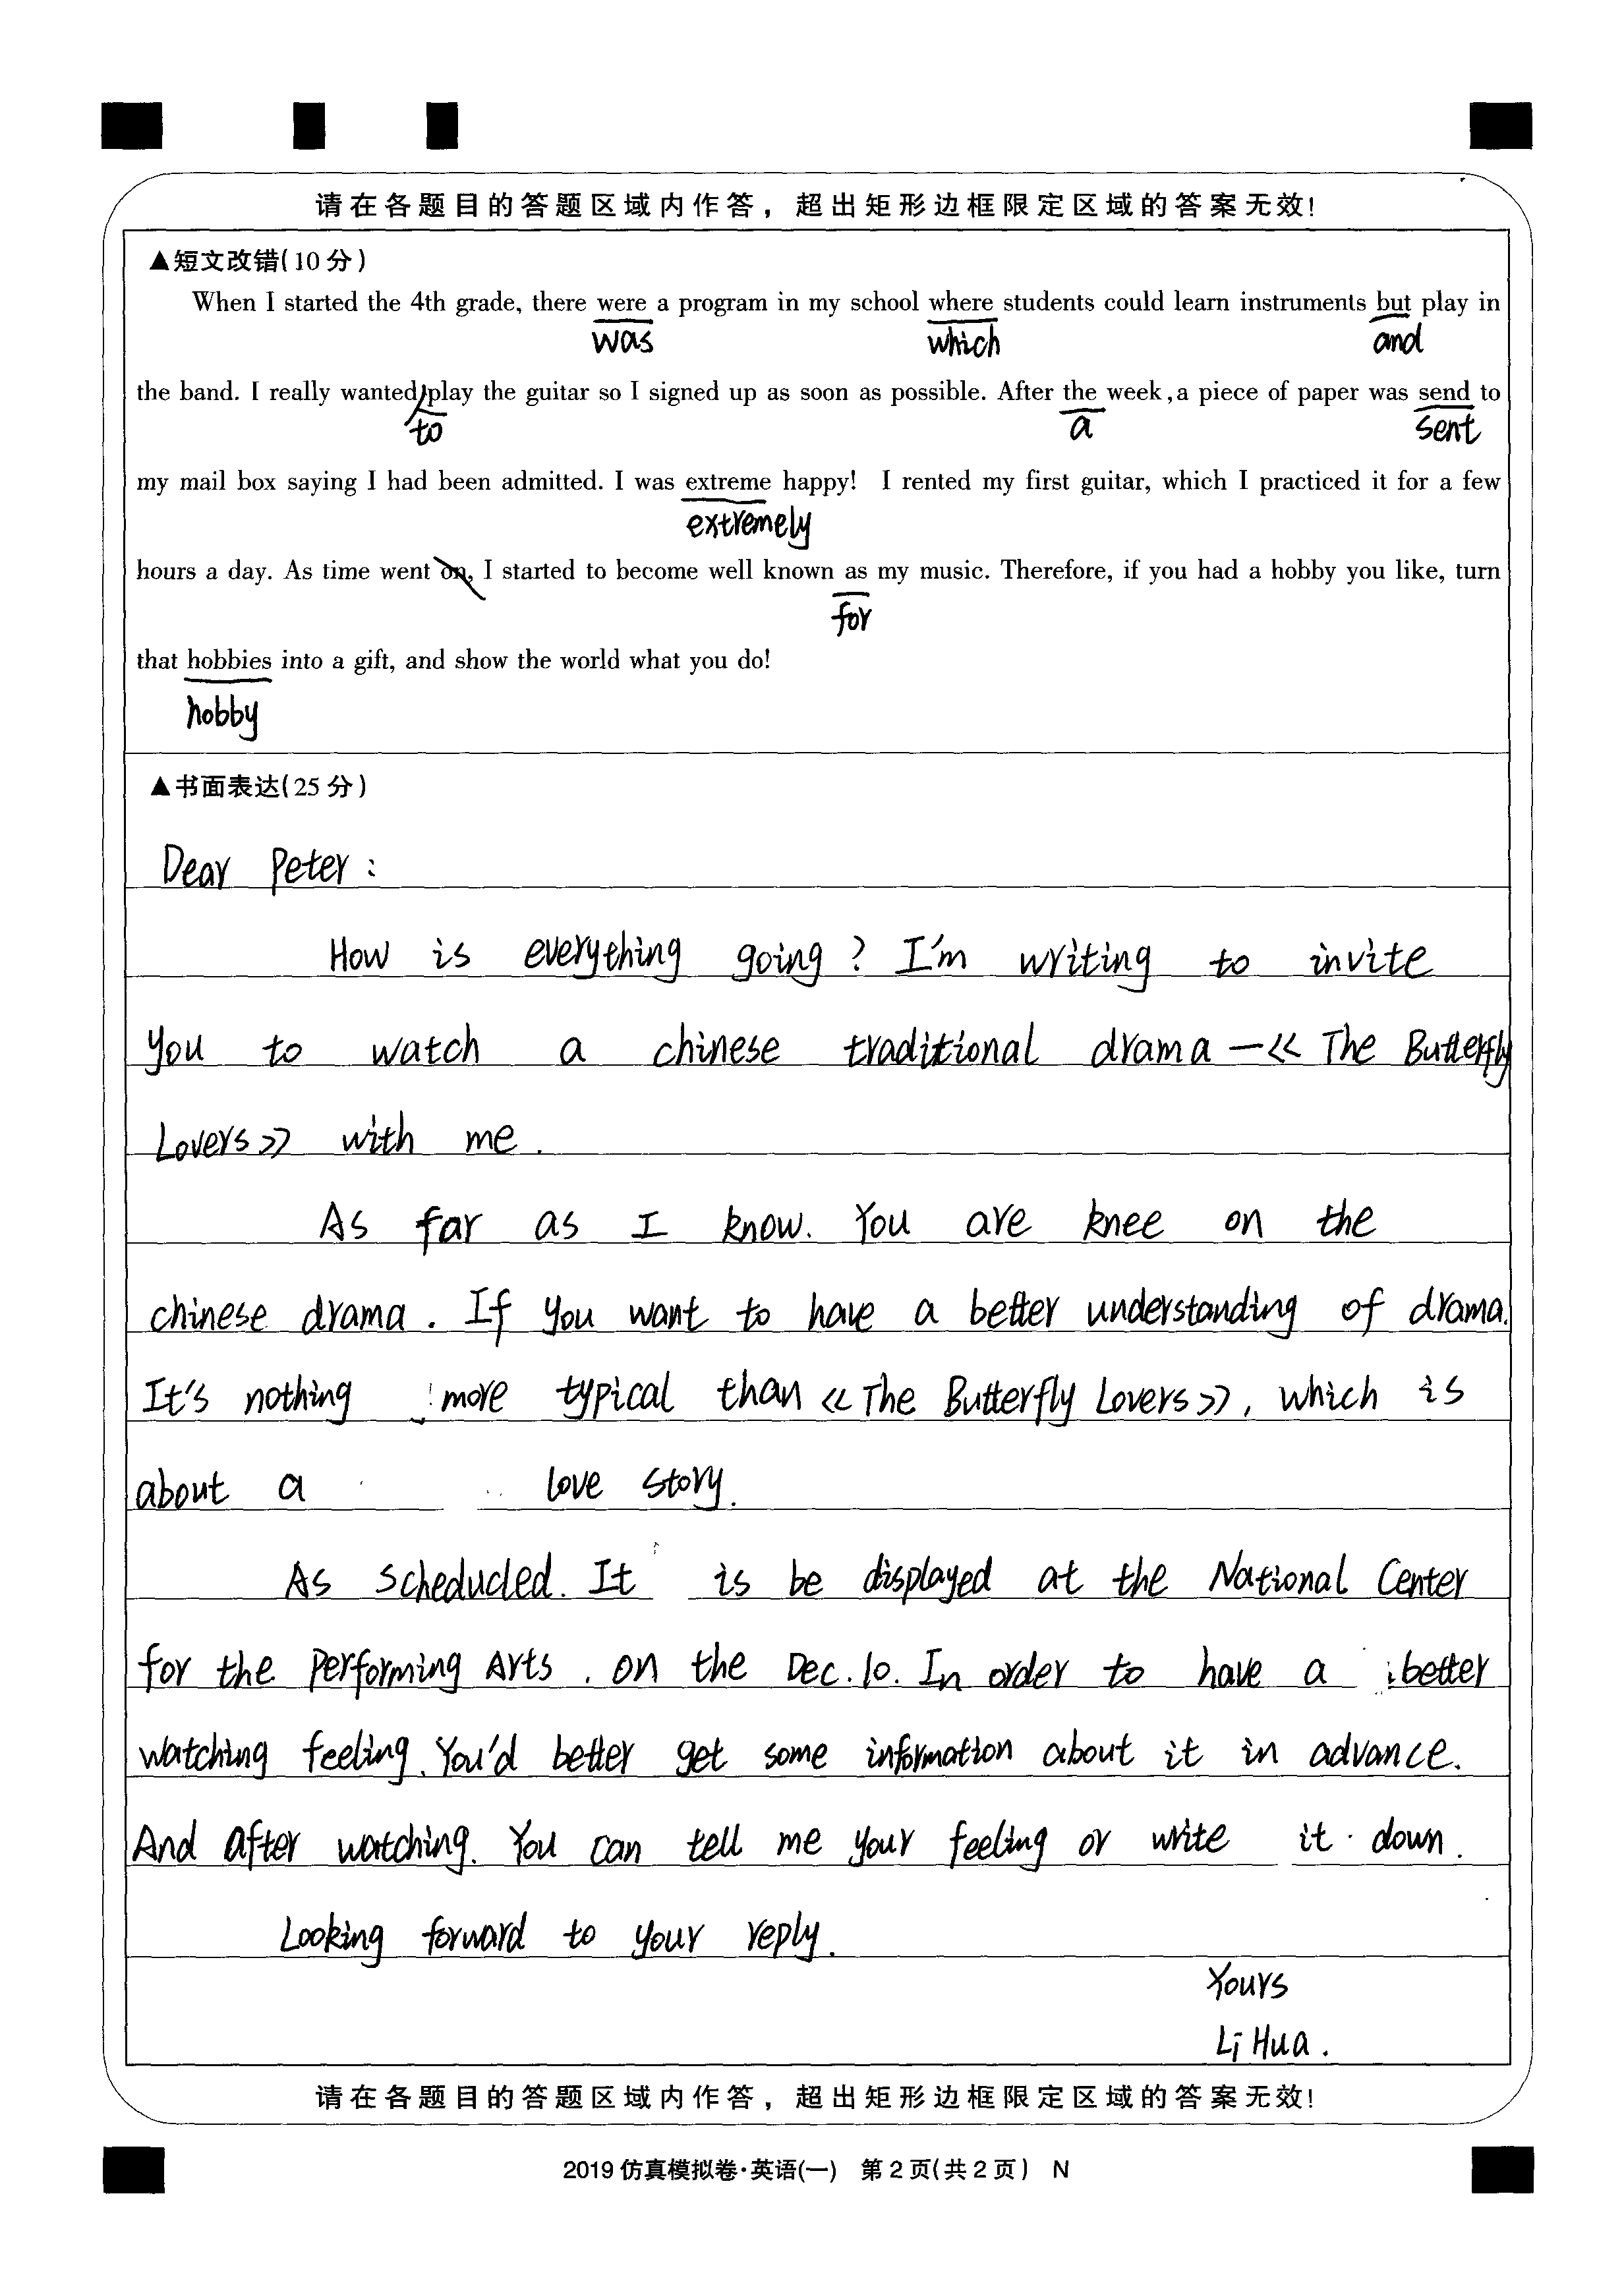 请在各题目的答题区域内作答，超出矩形边框限定区域的答案无效!
▲短文改错(10分)
When I started the 4th grade, there were a program in my school where students could learn instruments but play in
was which and
the band. I really wanted play the guitar so I signed up as soon as possible. After the week,a piece of paper was send to
to a sent
my mail box saying I had been admitted. I was extreme happy! I rented my first guitar, which I practiced it for a few
extremely
hours a day. As time went on, I started to become well known as my music. Therefore, if you had a hobby you like, turn
for
that hobbies into a gift, and show the world what you do!
hobby
▲书面表达(25分)
Dear Peter:
How is everything going? I'm writing to invite
you to watch a chinese traditional drama —《The Butterfly
Lovers》 with me.
As far as I know. You are knee on the
chinese drama. If you want to have a better understanding of drama.
It's nothing more typical than《The Butterfly Lovers》, which is
about a love story.
As scheducled. It is be displayed at the National Center
for the Performing Arts. on the Dec. 10. In order to have a better
watching feeling. You'd better get some information about it in advance.
And after watching. You can tell me your feeling or write it down.
Looking forward to your reply.
Yours
Li Hua.
请在各题目的答题区域内作答，超出矩形边框限定区域的答案无效!
2019仿真模拟卷·英语(一) 第2页(共2页) N